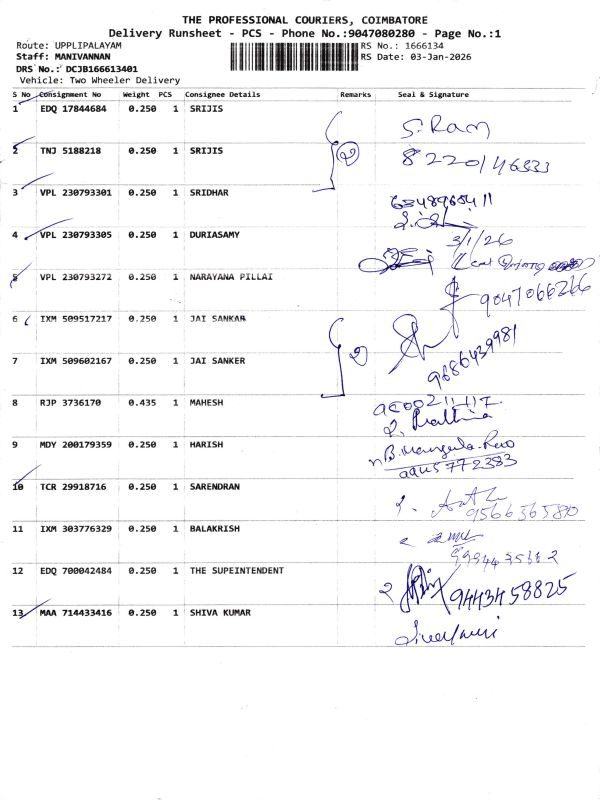 THE PROFESSIONAL COURIERS, COIMBATORE
Delivery Runsheet - PCS - Phone No.:9047080280 - Page No.:1
Route: UPPLIPALAYAM RS No.: 1666134
Staff: MANIVANNAN RS Date: 03-Jan-2026
DRS No.: DCJB166613401
Vehicle: Two Wheeler Delivery
S No Consignment No Weight PCS Consignee Details Remarks Seal & Signature
1 EDQ 17844684 0.250 1 SRIJIS
S. Ram
2 TNJ 5188218 0.250 1 SRIJIS
2
3 VPL 230793301 0.250 1 SRIDHAR
4 VPL 230793305 0.250 1 DURIASAMY
3/1/26
5 VPL 230793272 0.250 1 NARAYANA PILLAI
9047066266
6 IXM 509517217 0.250 1 JAI SANKAR
2
7 IXM 509602167 0.250 1 JAI SANKER
9686439981
8 RJP 3736170 0.435 1 MAHESH
9 MDY 200179359 0.250 1 HARISH
10 TCR 29918716 0.250 1 SARENDRAN
9566365810
11 IXM 303776329 0.250 1 BALAKRISH
12 EDQ 700042484 0.250 1 THE SUPEINTENDENT
9443458825
13 MAA 714433416 0.250 1 SHIVA KUMAR